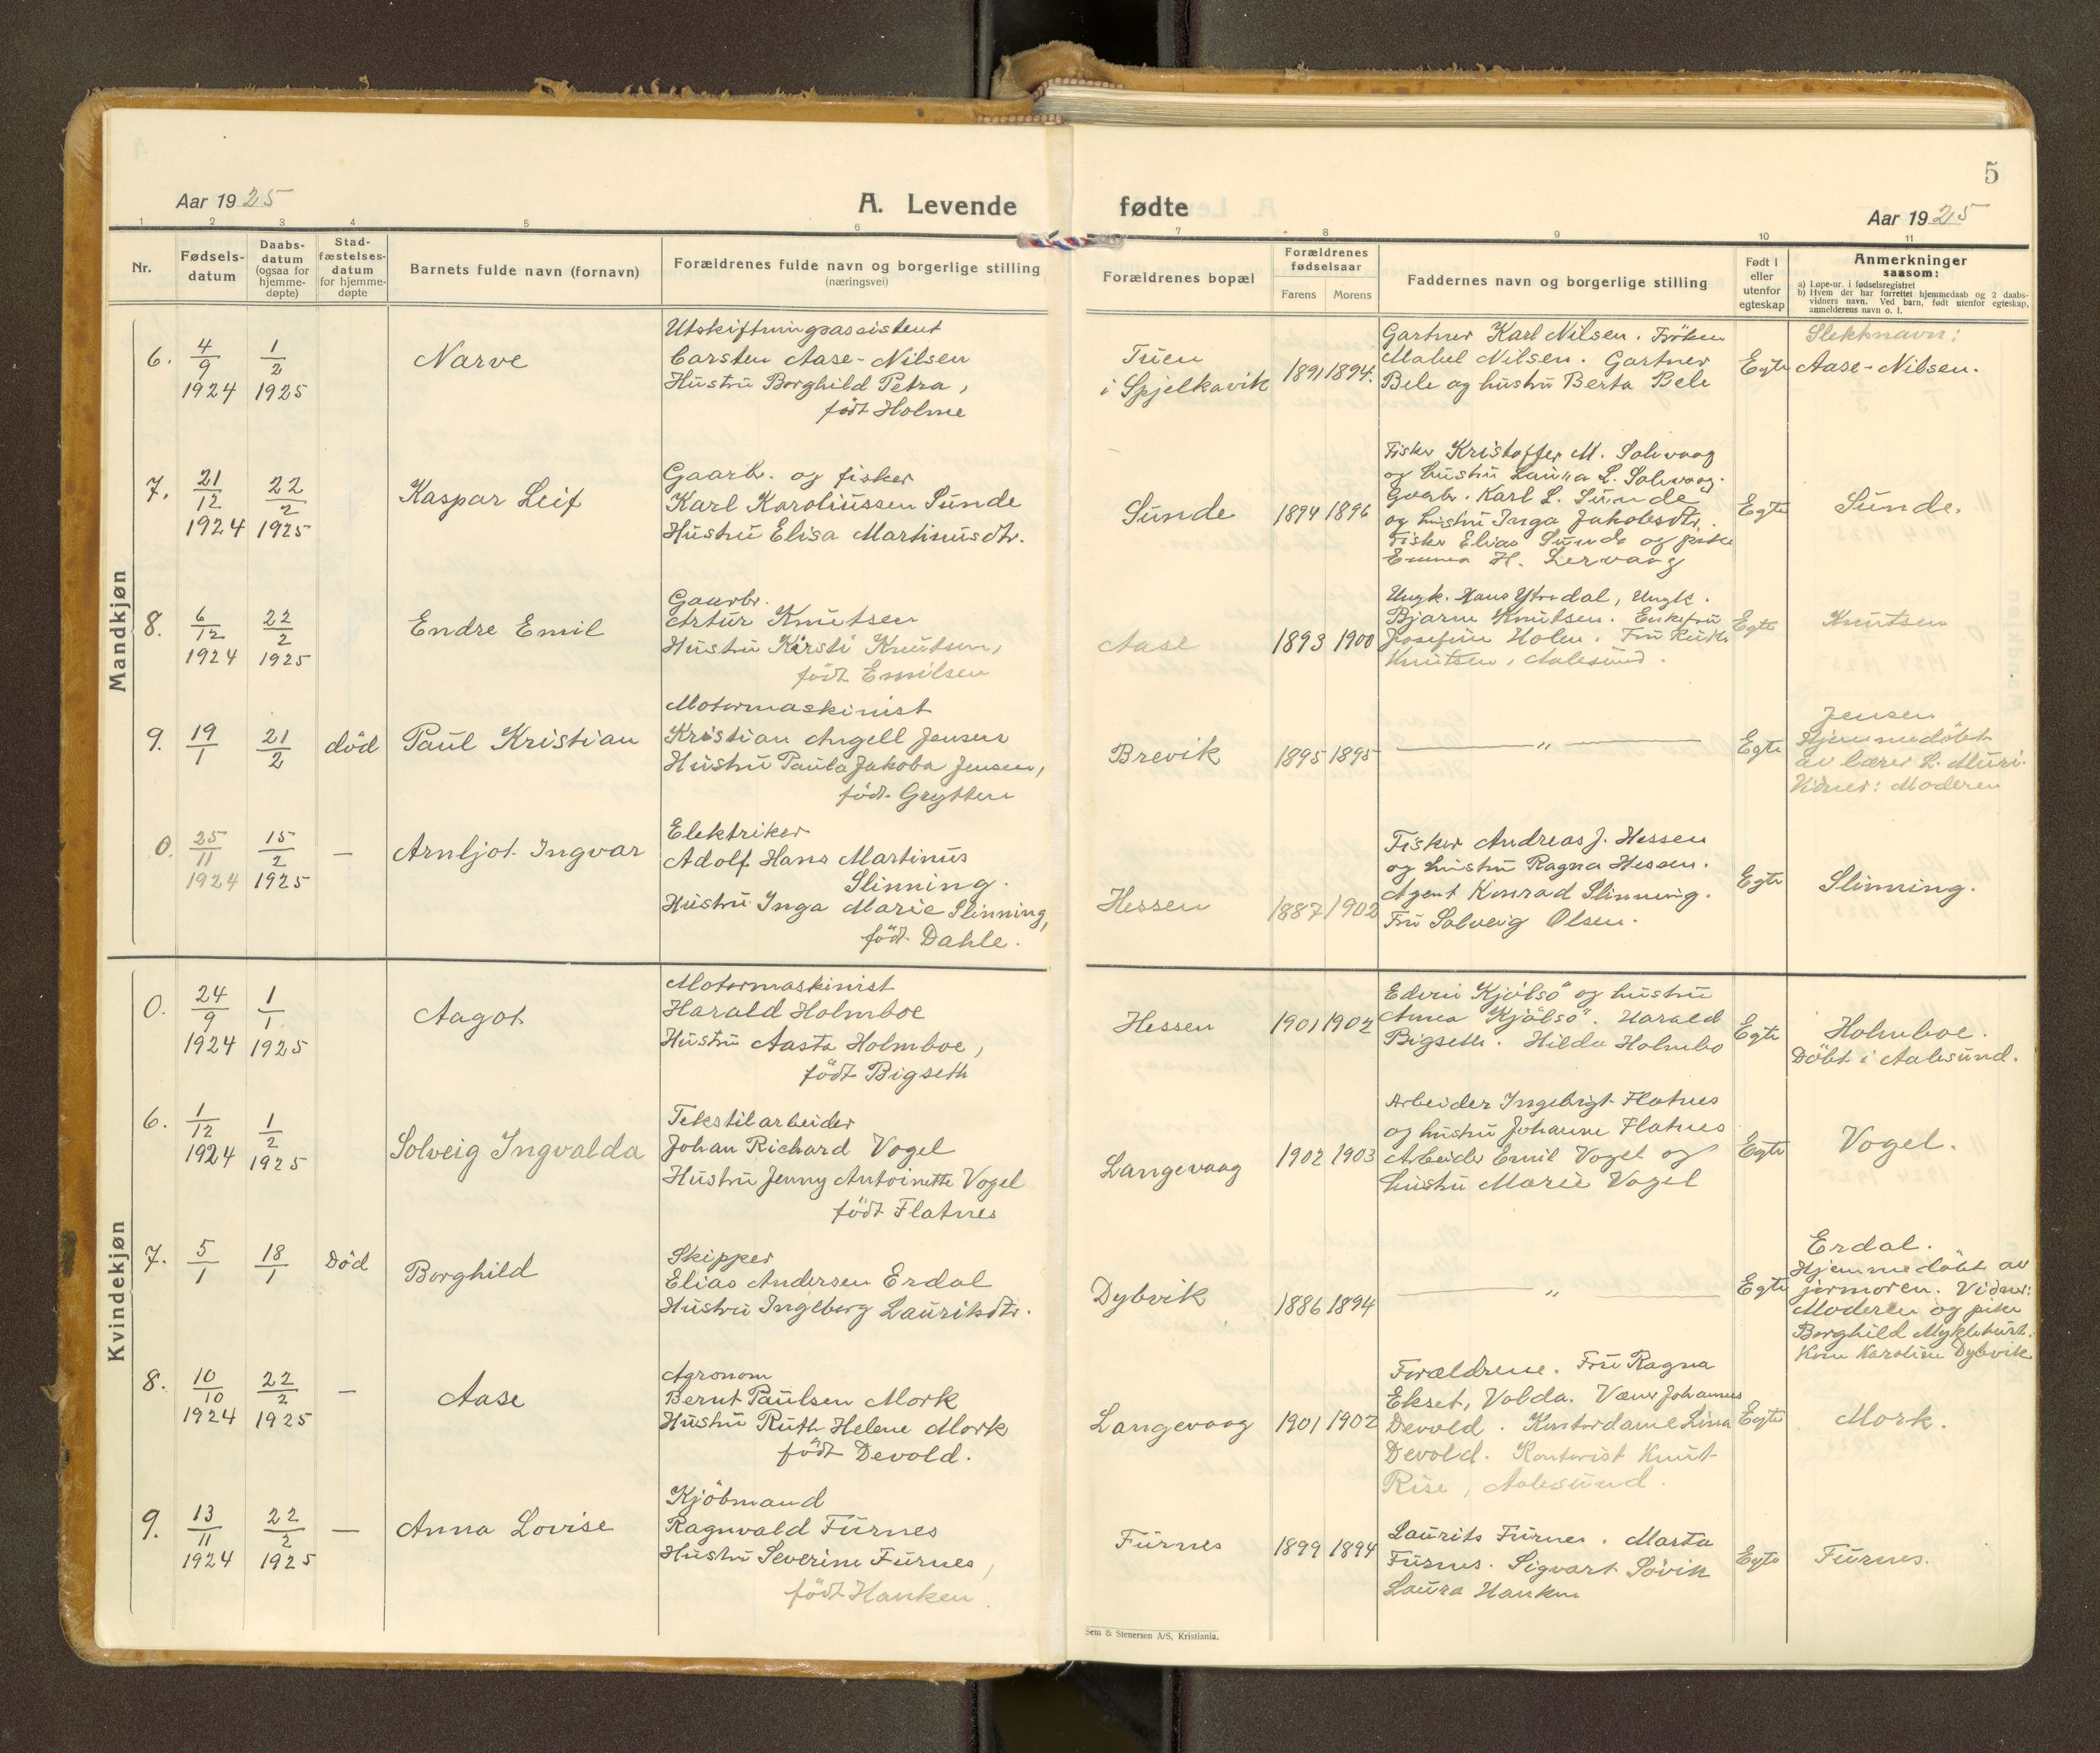 5
Aar 1925
A. Levende
fødte
Aar 1925
1 2 3 4 5 6 7 8 9 10 11
Nr.
Fødsels-
datum
Daabs-
datum
(ogsaa for
hjemme-
døpte)
Stad-
fæstelses-
datum
for hjemme-
døpte
Barnets fulde navn (fornavn)
Forældrenes fulde navn og borgerlige stilling
(næringsvei)
Forældrenes bopæl
Forældrenes
fødselsaar
Farens Morens
Faddernes navn og borgerlige stilling
Født i
eller
utenfor
egteskap
Anmerkninger
saasom:
a) Løpe-nr. i fødselsregistret
b) Hvem der har forrettet hjemmedaab og 2 daabs-
vidners navn. Ved barn, født utenfor egteskap,
anmelderens navn o. l.
Mandkjøn
6.
4/9
1924
1/2
1925
Narve
Utskiftningsassistent
Carsten Aase-Nilsen
Hustru Borghild Petra,
födt Holme
Tuen
i Spjelkavik
1891 1894.
Gartner Karl Nilsen. Fröken
Mabel Nilsen. Gartner
Bele og hustru Berta Bele
Egte
Slektnavn:
Aase-Nilsen.
7.
21/12
1924
22/2
1925
Kaspar Leif
Gaarb. og fisker
Karl Karoliussen Sunde
Hustru Elisa Martinusdtr.
Sunde
1894 1896
Fisker Kristoffer M. Solevaag
og hustru Laura L. Solevaag.
Gaarbr. Karl L. Sunde
og hustru Inga Jakobsdtr.
Fisker Elias Sunde og pike
Emma H. Lervaag
Egte
Sunde.
8.
6/12
1924
22/2
1925
Endre Emil
Gaarbr.
Artur Knutsen
Hustru Kirsti Knutsen,
födt Emilsen
Aase
1893 1900
Ungk. Hans Ytredal, Ungk.
Bjarne Knutsen. Enkefru
Josefine Holen. Fru Ruth
Knutsen, Aalesund.
Egte
Knutsen
9.
19/1
21/2
död
Paul Kristian
Motormaskinist
Kristian Angell Jensen
Hustru Paula Jakoba Jensen,
födt Grytten
Brevik
1895 1895
— „ —
Egte
Jensen
Hjemmedöbt
av lærer L. Muri.
Vidner: Moderen
0.
25/11
1924
15/2
1925
—
Arnljot Ingvar
Elektriker
Adolf Hans Martinus
Slinning.
Hustru Inga Marie Slinning,
födt Dahle.
Hessen
1887 1902
Fisker Andreas J. Hessen
og hustru Ragna Hessen.
Agent Konrad Slinning.
Fru Solveig Olsen.
Egte
Slinning.
Kvindekjøn
0.
24/9
1924
1/1
1925
Aagot
Motormaskinist
Harald Holmboe
Hustru Aasta Holmboe,
födt Bigseth
Hessen
1901 1902
Edvin Kjölsö og hustru
Anna Kjölsö. Harald
Bigseth. Hilda Holmbo
Egte
Holmboe.
Döbt i Aalesund.
6.
1/12
1924
1/2
1925
Solveig Ingvalda
Tekstilarbeider
Johan Richard Vogel
Hustru Jenny Antoinette Vogel
födt Flatnes
Langevaag
1902 1903
Arbeider Ingebrigt Flatnes
og hustru Johanne Flatnes
Arbeider Emil Vogel og
hustru Marie Vogel
Egte
Vogel.
7.
5/1
18/1
Död
Borghild
Skipper
Elias Andersen Erdal
Hustru Ingeborg Lauritsdtr.
Dybvik
1886 1894
— „ —
Egte
Erdal.
Hjemmedöbt av
jormoren. Vidner:
Moderen og pike
Borghild Myklebust.
Kone Karoline Dybvik
8.
10/10
1924
22/2
1925
—
Aase
Agronom
Bernt Paulsen Mork
Hustru Ruth Helene Mork
födt Devold.
Langevaag
1901 1902
Forældrene. Fru Ragna
Ekset, Volda. Væver Johannes
Devold. Kontordame Lina
Devold. Kontorist Knut
Rise, Aalesund.
Egte
Mork.
9.
13/11
1924
22/2
1925
—
Anna Lovise
Kjöbmand
Ragnvald Furnes
Hustru Severine Furnes,
födt Hanken.
Furnes
1899 1894
Laurits Furnes. Marta
Furnes. Sigvart Sövik
Laura Hanken
Egte
Furnes.
Sem & Stenersen A/S, Kristiania.